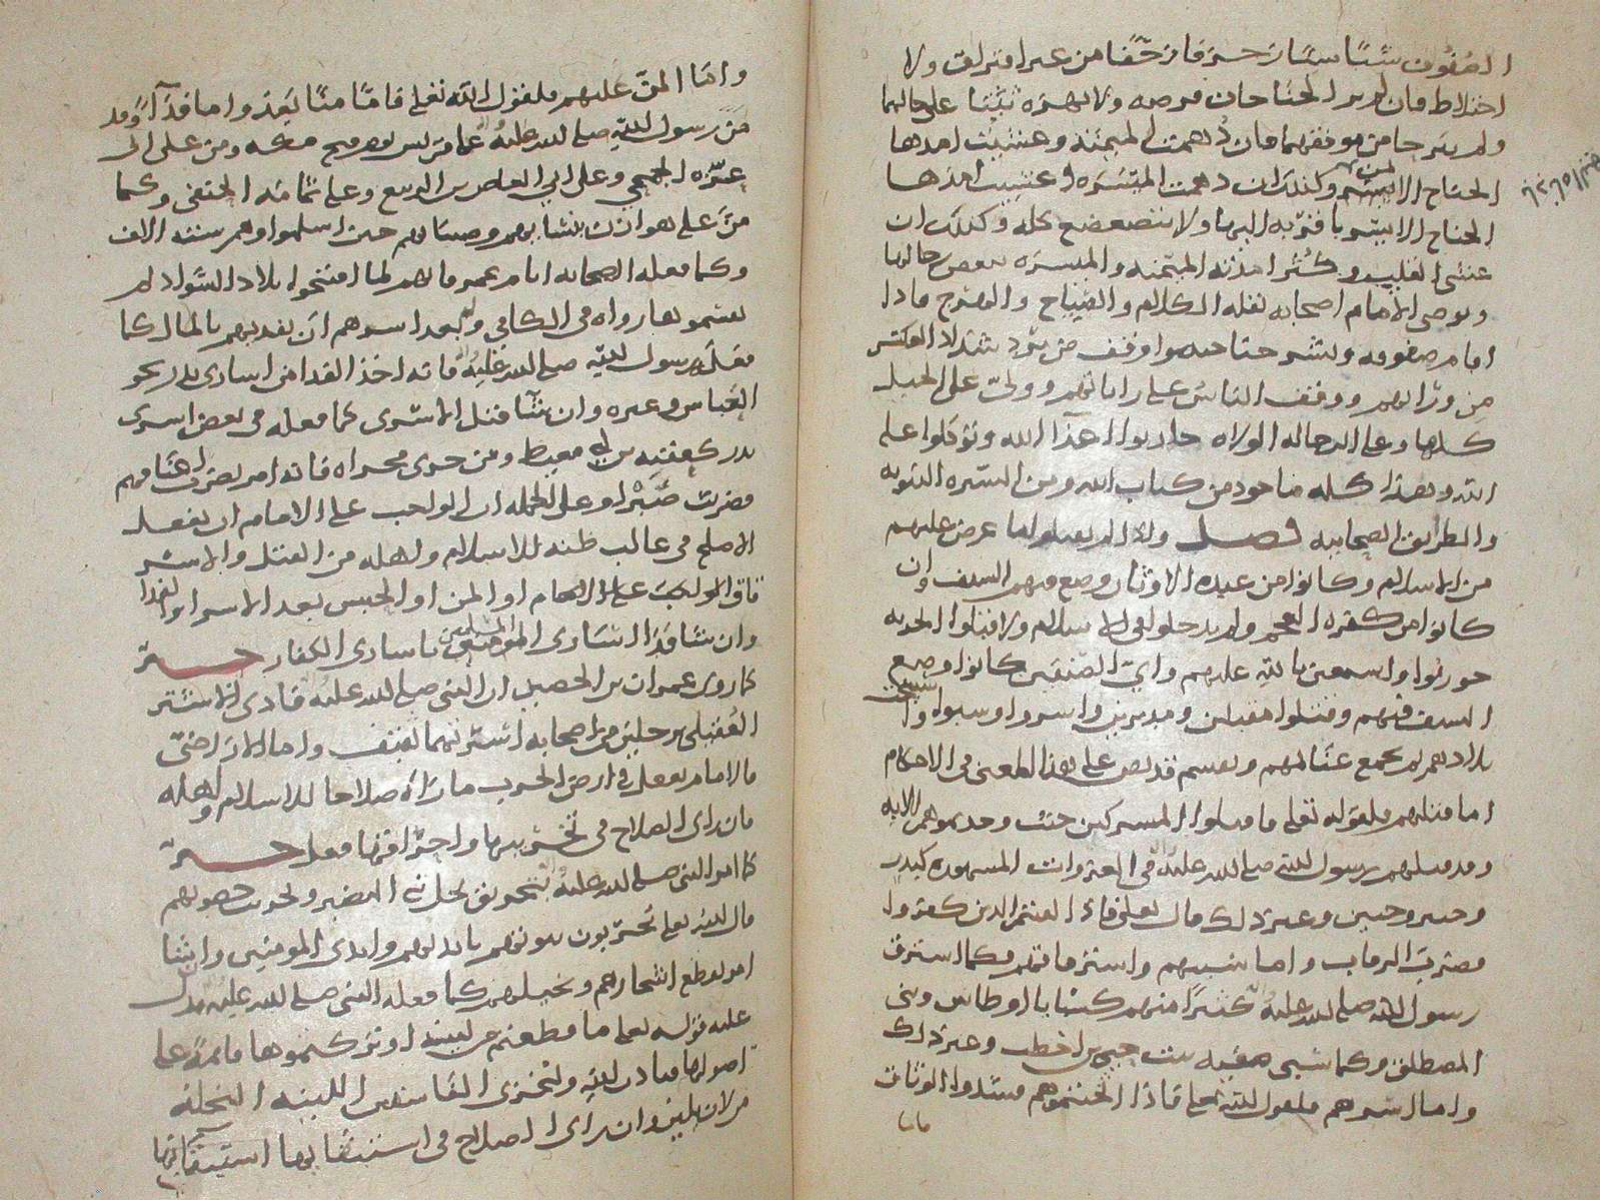 الصفوف شيئا شيئا زحفا من غير افتراق ولا
اختلاط فان لم ير الجناحان فرصه ولا نهزه ثبتا على حالهما
ولم يبرحا من موقفهما فان دهمت الميمنة وغشيت امدها
الجناح الايمن وكذلك ان دهمت الميسره او غشيت امدها
الجناح الايسر بما قرب اليها ولا يتضعضع كله وكذلك ان
غشي القلب وكثر امدته الميمنه والميسره ببعض رجالها
ويوصي الامام اصحابه بقله الكلام والصياح والهرج فاذا
اقام صفوفه ونشر جناحيه واوقف من يرد شذاذ العسكر
من ورائهم ووقف الناس على راياتهم وولى على الخيل
كلها وعلى الرجاله الولاه حاربوا اعداء الله وتوكلوا على
الله وهذا كله ماخوذ من كتاب الله ومن السيره النبويه
والطرايق الصحابيه فصل واذا لم يقبلوا ما عرض عليهم
من الاسلام وكانوا من عبده الاوثان وضع فيهم السيف وان
كانوا من كفره العجم ولم يدخلوا في الاسلام ولا قبلوا الجزيه
حوربوا واستعين بالله عليهم واي الصنفين كانوا وضع
السيف فيهم وقتلوا مقبلين ومدبرين واسروا وسبوا واستبيحت
بلادهم ثم يجمع غنائمهم ويقسم قد نص على هذا المعنى في الاحكام
اما قتلهم فلقوله تعالى فاقتلوا المشركين حيث وجدتموهم الايه
وقد قتلهم رسول الله صلى الله عليه في الغزوات المشهوره كبدر
وخيبر وحنين وغير ذلك قال تعالى فاذا لقيتم الذين كفروا
فضرب الرقاب واما سبيهم واسترقاقهم فكما استرق
رسول الله صلى الله عليه كثيرا منهم كسبايا اوطاس وبني
المصطلق وكما سبي صفيه بنت حيي بن اخطب وغير ذلك
واما اسرهم فلقول الله تعالى فاذا اثخنتموهم فشدوا الوثاق
واما المن عليهم فلقول الله تعالى فاما منا بعد واما فداء وقد
من رسول الله صلى الله عليه على قريش يوم فتح مكه ومن على ابي
عزه الجمحي وعلى ابي العاص بن الربيع وعلى ثمامه الحنفي وكما
من على هوازن بنسائهم وصبيانهم حين اسلموا وهم سته الاف
وكما فعله الصحابه ايام عمر فانهم لما افتتحوا بلاد السواد لم
يغنموها رواه في الكافي وله بعد اسرهم ان يفديهم بالمال كما
فعله رسول الله صلى الله عليه فانه اخذ الفدا من اسارى بدر نحو
العباس وغيره وان شا قتل الاسرى كما فعله في بعض اسرى
بدر كعقبه بن ابي معيط ومن جرى مجراه فانه امر بضرب اعناقهم
فضربت صبرا وعلى الجمله ان الواجب على الامام ان يفعل
الاصلح في غالب ظنه للاسلام واهله من القتل والاسر
فان الواجب على الامام او المن او الحبس بعد الاسر او الفدا
وان شا فدا اسارى المسلمين باسارى الكفار خبر
كما روى عمران بن الحصين ان النبي صلى الله عليه فادى الاسير
العقيلي برجلين من اصحابه اسرتهما ثقيف واما الاراضي
فالامام يفعل في ارض الحرب ما راه صلاحا للاسلام واهله
فان راى الصلاح في تخريبها واحراقها فعل خبر
كما امر النبي صلى الله عليه بتحريق نخل بني النضير وتخريب حصونهم
قال الله تعالى يخربون بيوتهم بايديهم وايدي المومنين وايضا
امر بقطع اشجارهم ونخيلهم كما فعله النبي صلى الله عليه يدل
عليه قوله تعالى ما قطعتم من لينة او تركتموها قائمة على
اصولها فباذن الله وليخزي الفاسقين اللينه النخله
ان راى الصلاح في استبقائها استبقاها